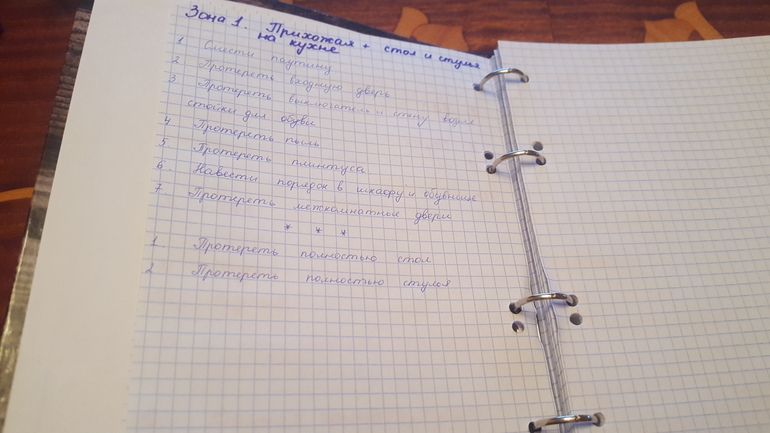 Зона 1. Прихожая + стол и стулья
на кухне
1 Смести паутину
2 Протереть входную дверь
3 Протереть выключатель и стену возле
стойки для обуви
4 Протереть пыль
5 Протереть плинтуса
6. Навести порядок в шкафу и обувнице
7 Протереть межкомнатные двери
* * *
1 Протереть полностью стол
2 Протереть полностью стулья